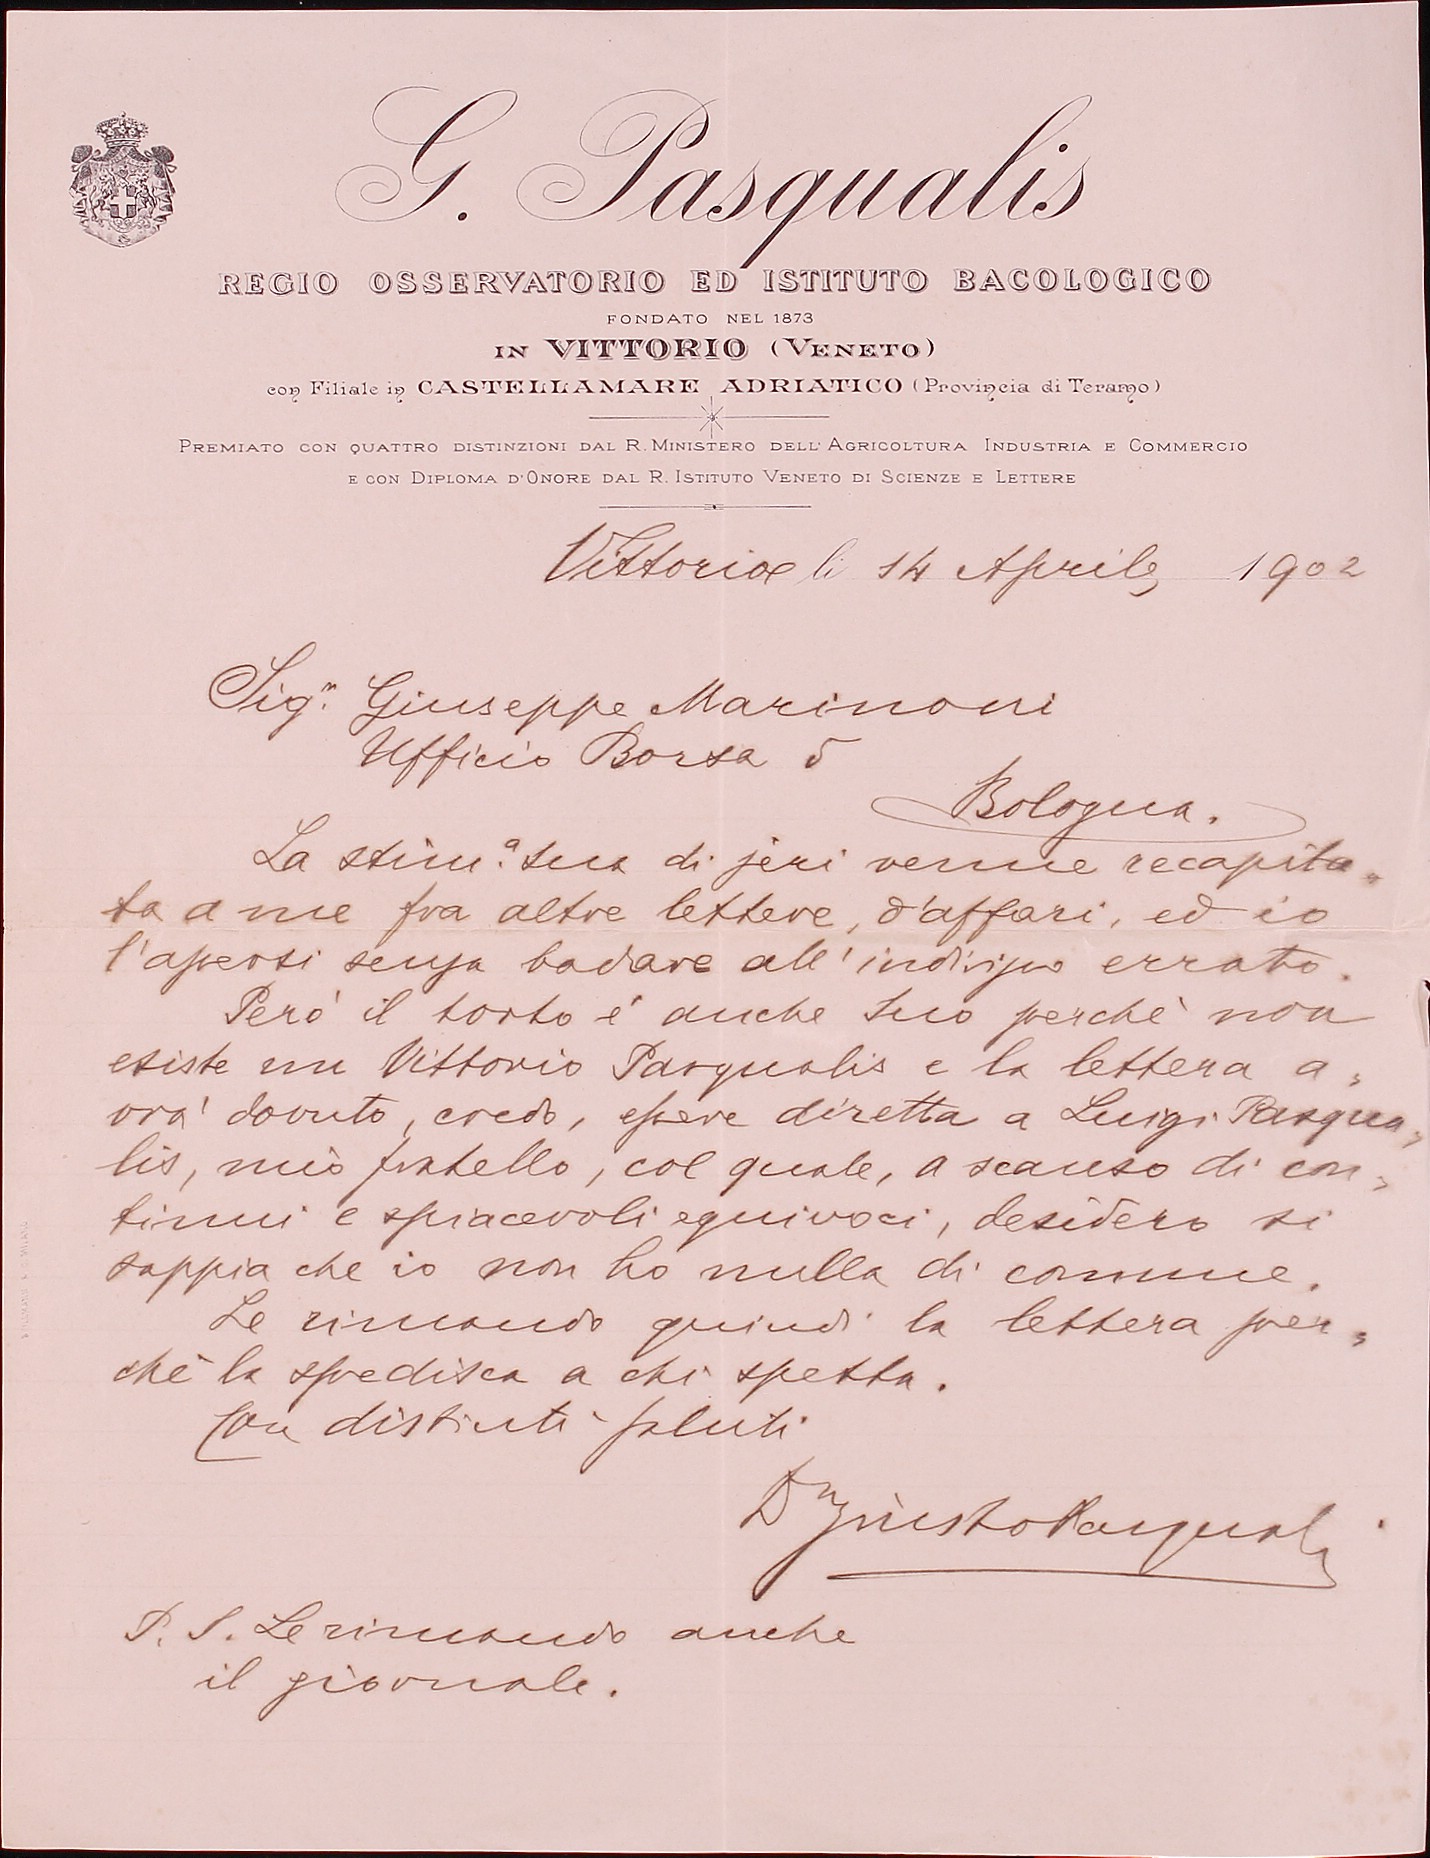 G. Pasqualis
REGIO OSSERVATORIO ED ISTITUTO BACOLOGICO
FONDATO NEL 1873
IN VITTORIO (VENETO)
con Filiale in CASTELLAMARE ADRIATICO (Provincia di Teramo)
PREMIATO CON QUATTRO DISTINZIONI DAL R. MINISTERO DELL'AGRICOLTURA INDUSTRIA E COMMERCIO
E CON DIPLOMA D'ONORE DAL R. ISTITUTO VENETO DI SCIENZE E LETTERE
Vittorio li 14 Aprile 1902
Sigr. Giuseppe Marinoni
Ufficio Borsa 5
Bologna.
La stim.a sua di jeri venne recapita-
ta a me fra altre lettere, d'affari, ed io
l'apersi senza badare all'indirizzo errato.
Però il torto è anche suo perchè non
esiste un Vittorio Pasqualis e la lettera a-
vrà dovuto, credo, essere diretta a Luigi Pasqua-
lis, mio fratello, col quale, a scanso di con-
tinui e spiacevoli equivoci, desidero si
sappia che io non ho nulla di comune.
Le rimando quindi la lettera per-
chè la spedisca a chi spetta.
Con distinti saluti
Dr Giusto Pasqualis
P. S. Le rimando anche
il giornale.